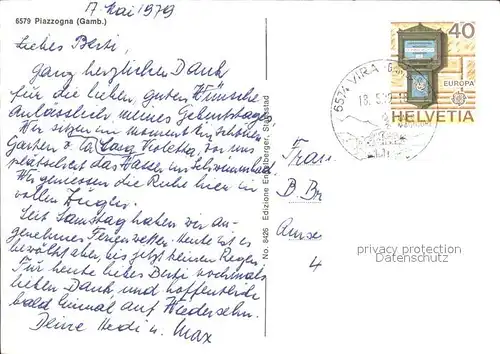 17. Mai 1979
6579 Piazzogna (Gamb.)
Liebes Berti,
ganz herzlichen Dank
für die lieben, guten Wünsche
anlässlich meines Geburtstages.
Wir sitzen im Moment im schönen
Garten v. Ca Violetta, vor uns
plätschert das Wasser im Schwimmbad.
Wir geniessen die Ruhe hier in
vollen Zügen.
Seit Samstag haben wir an-
genehmes Ferienwetter. Heute ist es
bewölkt aber bis jetzt keinen Regen.
Für heute liebes Berti nochmals
lieben Dank, und hoffentlich
bald einmal auf Wiedersehn.
Deine Hedi u. Max
No. 8426 Edizione Engelberger, Stansstad
6574 VIRA
18. 5.
40
EUROPA
HELVETIA
Frau
B. Br
4
privacy protection
Datenschutz